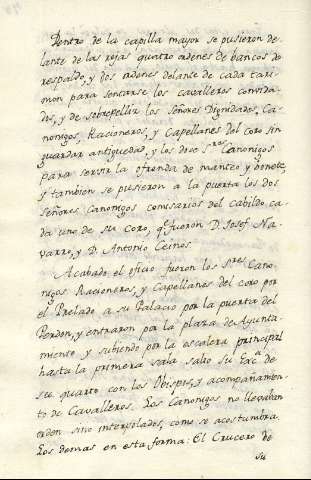 Dentro de la capilla mayor se pusieron de-
lante de las rejas quatro ordenes de bancos de
respaldo, y dos ordenes delante de cada tari-
mon para sentarse los cavalleros convida-
dos, y de sobrepelliz los Señores Dignidades, Ca-
nonigos, Racioneros, y Capellanes del coro sin
guardar antiguedad, y los doce S.res Canonigos
para servir la ofrenda de manteo y bonete,
y tambien se pusieron a la puerta los dos
Señores Canonigos comisarios del cabildo ca-
da uno de su coro, q.e fueron D. Josef Na-
varro, y D. Antonio Ceinos.
Acabado el oficio fueron los S.res Cano-
nigos Racioneros, y Capellanes del coro por
el Prelado a su Palacio por la puerta del
Perdon, y entraron por la plaza de Ayunta-
miento, y subiendo por la escalera principal
hasta la primera sala salio su Exc.a de
su quarto con los Obispos, y acompañamien-
to de Cavalleros. Los Canonigos no llevaban
orden sino interpolados, como se acostumbra.
Los demas en esta forma: El Crucero de
su